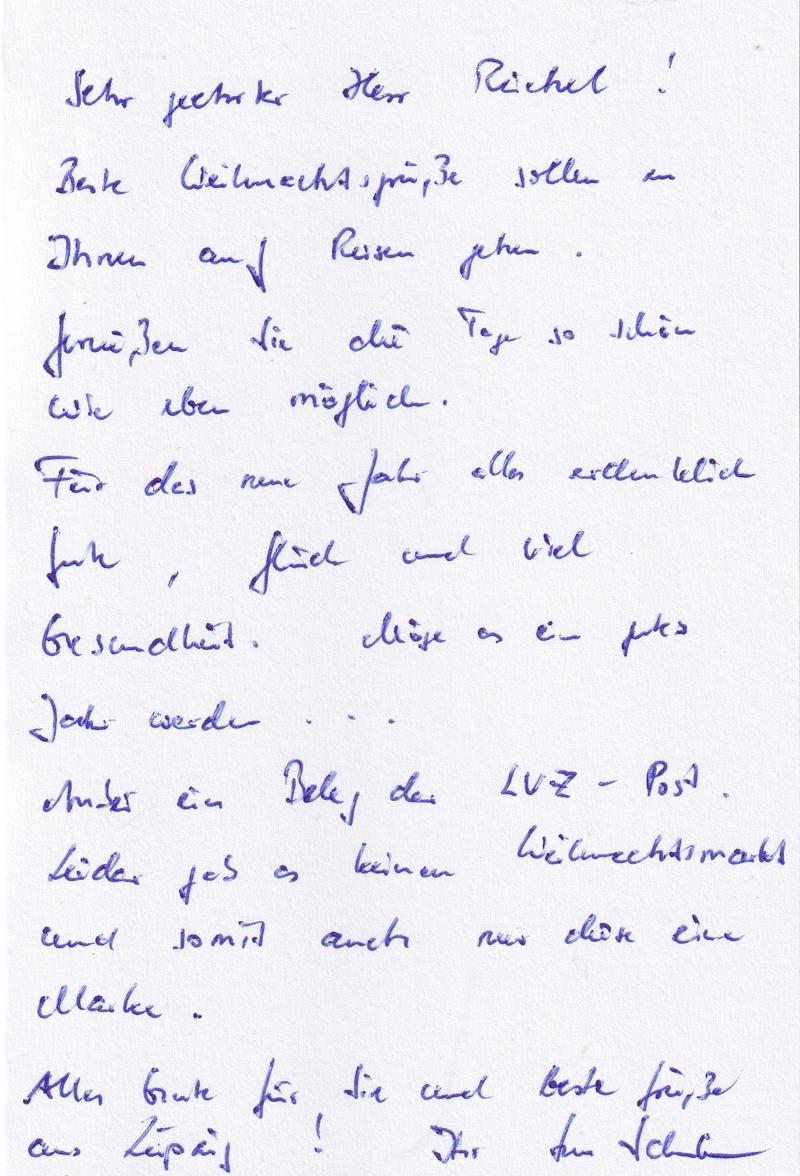 Sehr geehrter Herr !
Beste Weihnachtsgrüße sollen zu
Ihnen auf Reisen gehen .
Genießen Sie die Tage so schön
wie eben möglich .
Für das neue Jahr alles erdenklich
Gute , Glück und viel
Gesundheit . Möge es ein gutes
Jahr werden . . .
Anbei ein Beleg der LVZ - Post .
Leider gab es keinen Weihnachtsmarkt
und somit auch nur diese eine
Marke .
Alles Gute für Sie und beste Grüße
aus Leipzig ! Ihr